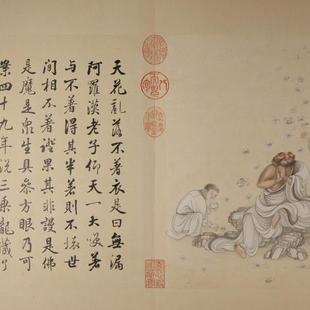 天花亂落不著衣是曰無漏
阿羅漢老子仰天一大噱著
與不著得其半著則不壞世
間相不著證果其非設是佛
是魔是衆生具參方眼乃可
案四十九年說三乘龍藏